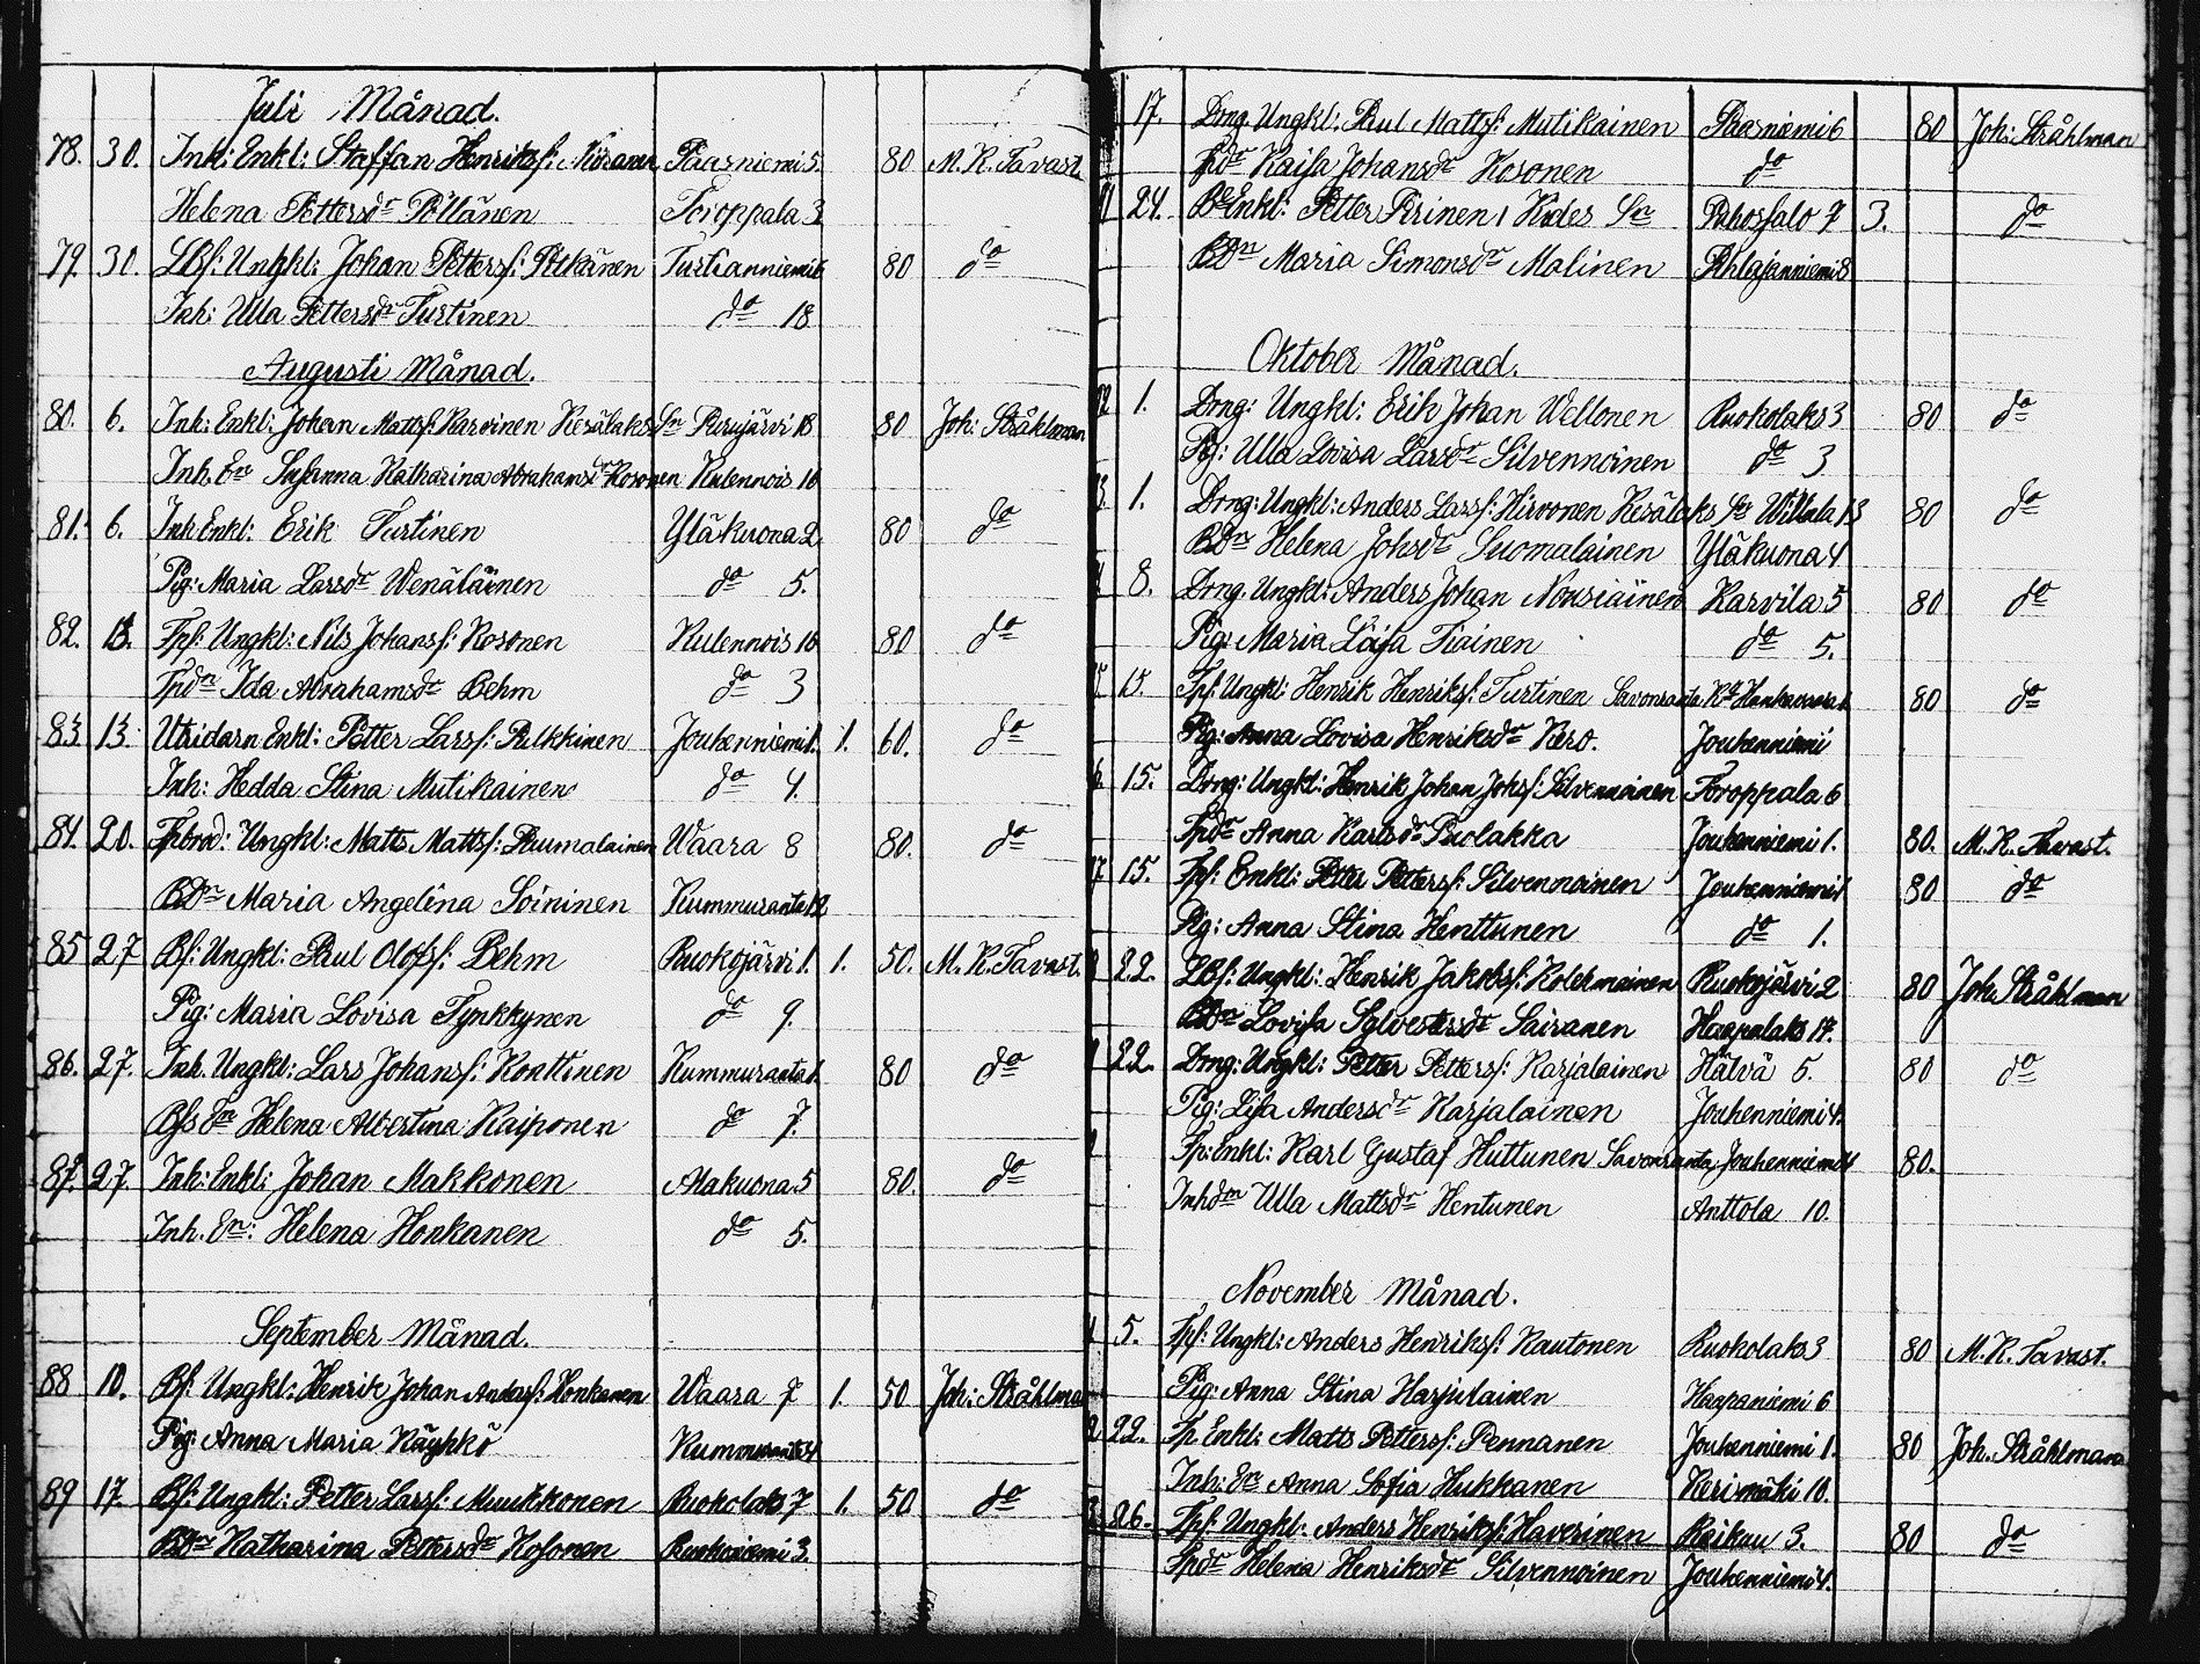 Juli Månad.
78. 30. Inh: Enkl: Staffan Henriksf: Paasniemi 5. 80 M. R. Tavast.
Helena Pettersdr Pöllänen Toroppala 3
79. 30. LBf: Ungkl: Johan Pettersf: Pitkänen Turtianniemi 6 80 do
Inh: Ulla Pettersdr Turtinen do 18
Augusti Månad.
80. 6. Inh: Enkl: Johan Mattsf: Karvinen Kesälaks Sn Purujärvi 18 80 Joh: Stråhlman
Inh. En Susanna Katharina Abrahamsdr Kosonen Kulennois 10
81. 6. Inh Enkl: Erik Turtinen Yläkuona 2 80 do
Pig: Maria Larsdr Wenäläinen do 5.
82. 13. Tpf: Ungkl: Nils Johansf: Kosonen Kulennois 10 80 do
Tpdn Ida Abrahamsdr Behm do 3
83 13. Utridarn Enkl: Petter Larsf: Pulkkinen Jouhenniemi 1. 1. 60. do
Inh: Hedda Stina Mutikainen do 4.
84. 20. Tpbrod: Ungkl: Matts Mattsf: Puumalainen Waara 8 80. do
BDn Maria Angelina Soininen Kummuranta 12
85 27 Bf: Ungkl: Paul Olofsf: Behm Ruokojärvi 1. 1. 50. M. R. Tavast.
Pig: Maria Lovisa Tynkkynen do 9.
86. 27. Inh. Ungkl: Lars Johansf: Konttinen Kummuranta 1. 80 do
Bfs En Helena Albertina Kaiponen do 7.
87. 27. Inh: Enkl: Johan Makkonen Alakuona 5 80. do
Inh. En: Helena Honkanen do 5.
September Månad.
88 10. Bf: Ungkl: Henrik Johan Andersf: Honkanen Waara 7 1. 50 Joh: Stråhlman
Pig: Anna Maria Käyhkö Kummuranta 4
89 17. Bf: Ungkl: Petter Larsf: Muukkonen Ruokolaks 7 1. 50 do
BDn Katharina Pettersdr Kosonen Ruokoniemi 3.
17. Drng. Ungkl: Paul Mattsf: Mutikainen Paasniemi 6 80 Joh: Stråhlman
Tpdr Kaisa Johansdr Kosonen do
24. Bd Enkl: Petter Pirinen, Kides Sn Puhossalo 7 3. do
BDn Maria Simonsdr Malinen Pihlajanniemi 8
Oktober Månad.
1. Drng: Ungkl: Erik Johan Wellonen Ruokolaks 3 80 do
Pig: Ulla Lovisa Larsdr Silvennoinen do 3
1. Drng: Ungkl: Anders Larsf: Hirvonen Kesälaks Sn Willala 13 80 do
BDn Helena Johsdr Suomalainen Yläkuona 4
8. Drng. Ungkl: Anders Johan Nousiäinen Karvila 5 80 do
Pig: Maria Loisa Tiainen do 5.
15. Tpf: Ungkl: Henrik Henriksf: Turtinen Savonranta 80 do
Pig: Anna Lovisa Henriksdr Kero. Jouhenniemi
15. Drng: Ungkl: Henrik Johan Johsf: Silvennoinen Toroppala 6
Tpdr Anna Karlsdr Puolakka Jouhenniemi 1. 80. M. R. Tavast.
15. Tpf: Enkl: Petter Pettersf: Silvennoinen Jouhenniemi 1 80 do
Pig: Anna Stina Henttunen do 1.
22. LBf: Ungkl: Henrik Jakobsf: Kolehmainen Ruokojärvi 2 80 Joh. Stråhlman
BDn Lovisa Sylvestersdr Sairanen Haapalaks 17.
22. Drng: Ungkl: Petter Pettersf: Karjalainen Hälvä 5. 80 do
Pig: Lisa Andersdr Karjalainen Jouhenniemi 4.
Tp: Enkl: Karl Gustaf Huttunen Savonranta, Jouhenniemi 4 80.
Inhdn Ulla Mattsdr Hentunen Anttola 10.
November Månad.
5. Tpf: Ungkl: Anders Henriksf: Kautonen Ruokolaks 3 80 M. R. Tavast.
Pig: Anna Stina Harjulainen Haapaniemi 6
22. Tp. Enkl: Matts Pettersf: Pennanen Jouhenniemi 1. 80 Joh. Stråhlman
Inh: En Anna Sofia Hukkanen Kerimäki 10.
26. Tpf: Ungkl: Anders Henriksf: Haverinen Raikuu 3. 80 do
Tpdr Helena Henriksdr Silvennoinen Jouhenniemi 4.